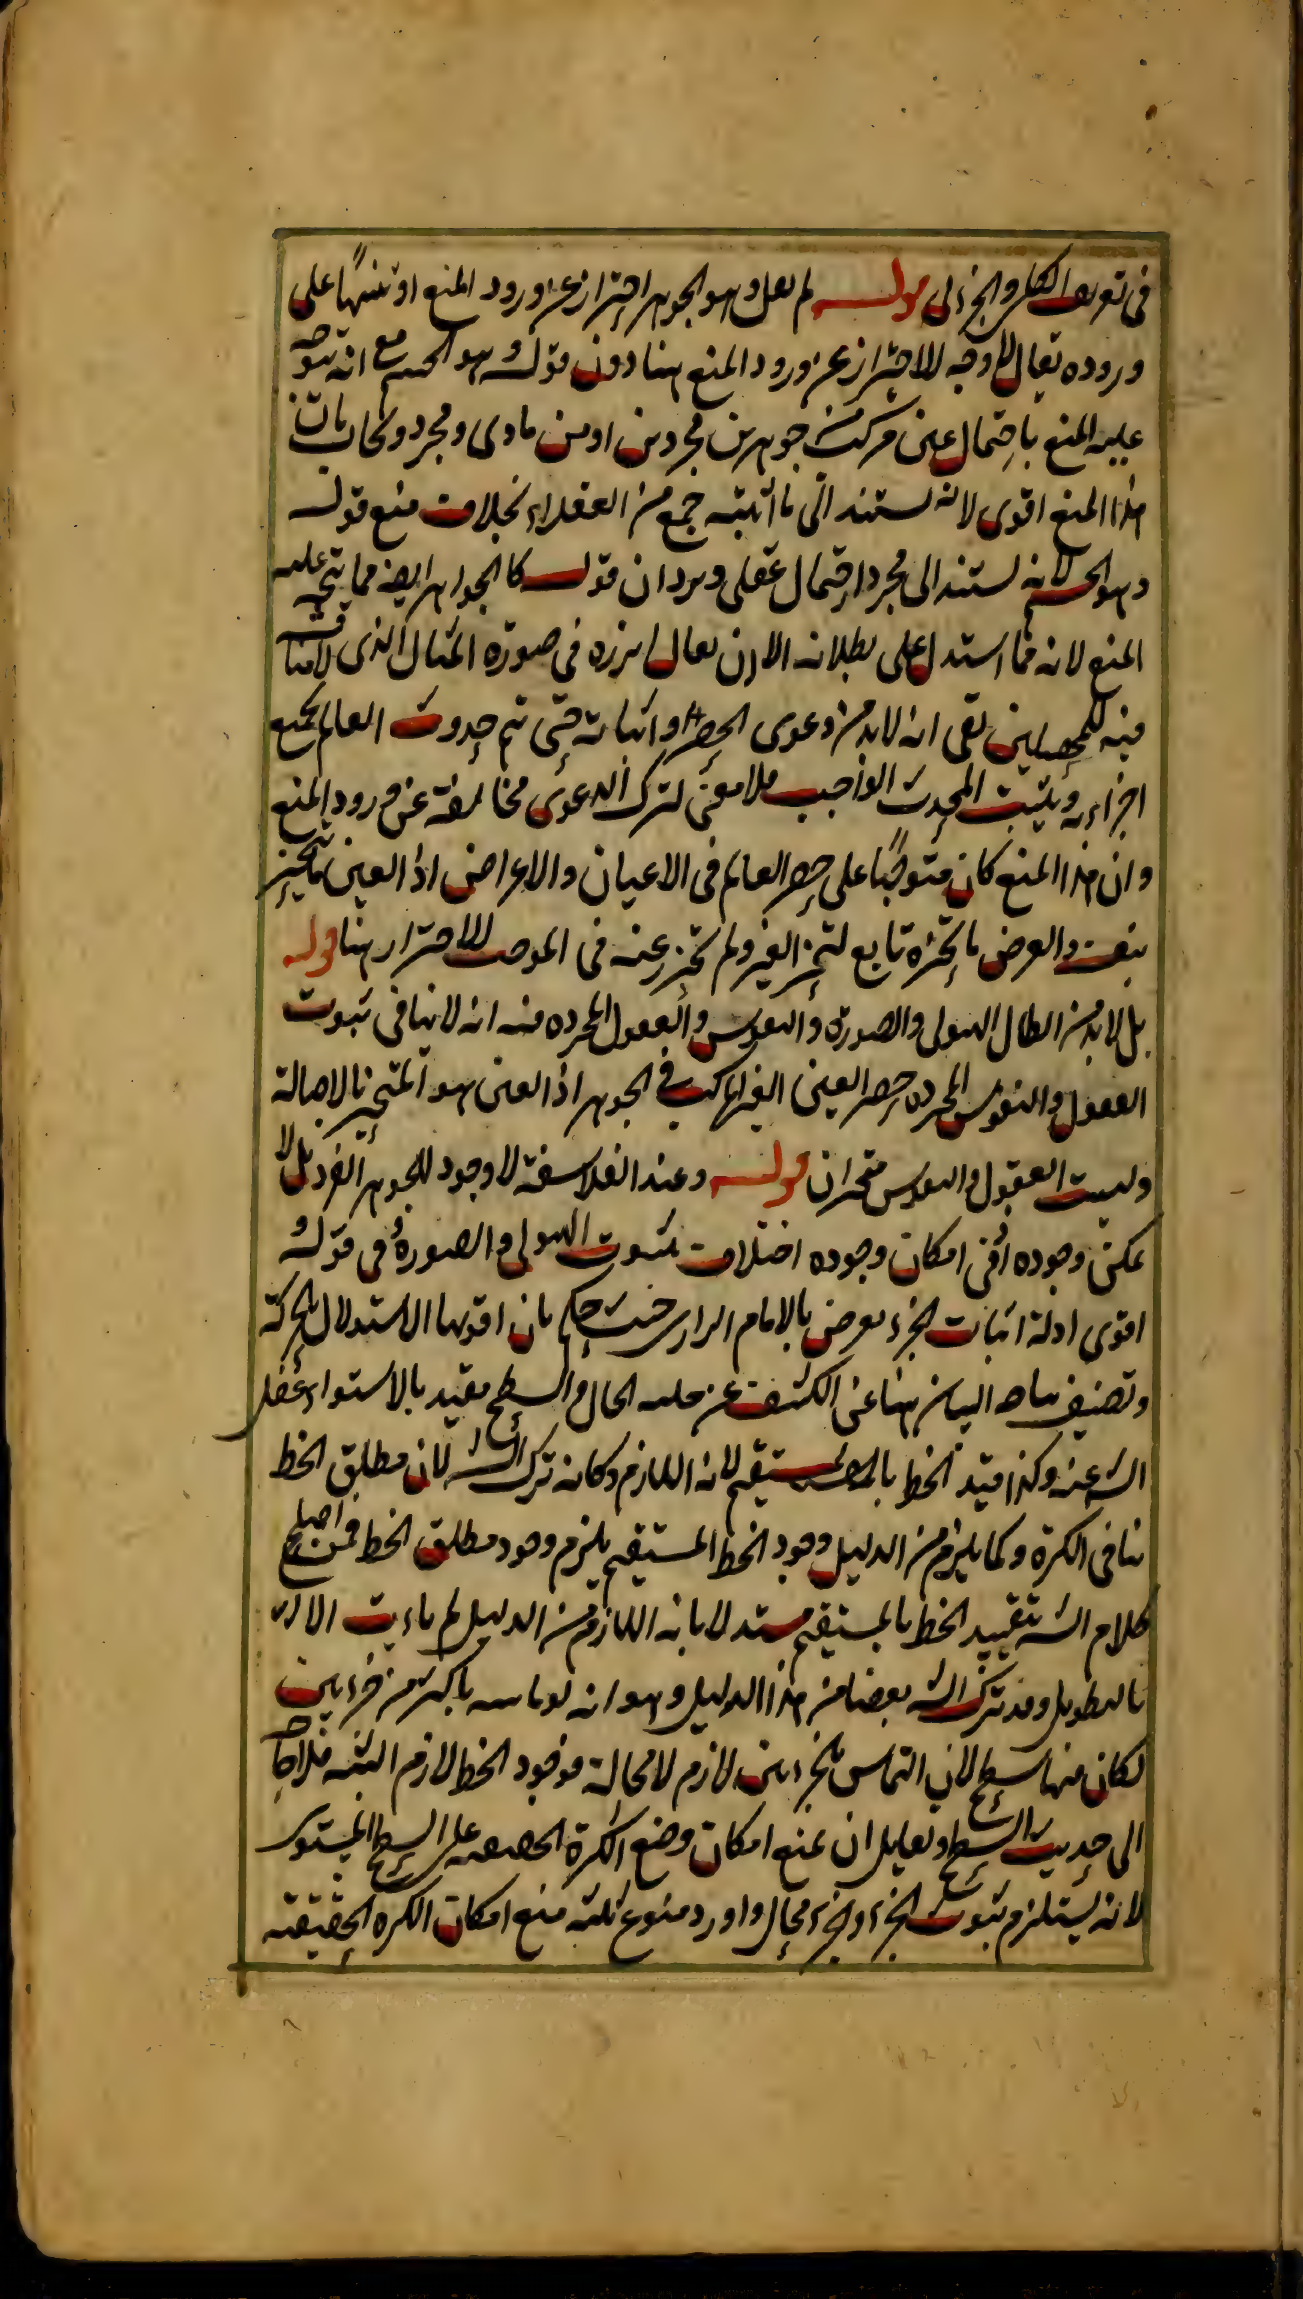 في تعريف الكل والجزء الى قوله لم يقل وهو الجوهر احترازا عن ورود المنع او تنبيها على
وروده يقال لا وجه للاحتراز عن ورود المنع هنا دون قوله وهو الجسم مع انه يتوجه
عليه المنع باحتمال عين مركب من جوهرين مجردين او من مادى ومجرد ويجاب بان
هذا المنع اقوى لانه يستند الى ما اثبته جمع من العقلاء بخلاف منع قوله
وهو الجسم لانه يستند الى مجرد احتمال عقلى ويرد ان قوله كالجواهر ايضا مما يتجه عليه
المنع لانه مما استدل على بطلانه الا ان يقال ابرزه فى صورة المثال الذى لا مناقشة
فيه للمحصلين بقى انه لا بد من دعوى الحصر واثباته حتى يتم حدوث العالم بجميع
اجزاءه ويثبت المحدث الواجب فلا معنى لترك الدعوى مخافة عن ورود المنع
وان هذا المنع كان متوجها على حصر العالم فى الاعيان والاعراض اذ العين ما يتحيز
بنفسه والعرض ما تحيزه تابع لتحيز الغير ولم يحترز عنه فى الموجب للاحتراز هنا قوله
بل لا بد من ابطال الهيولى والصورة والنفوس والعقول المجرده فيه انه لا ينافى ثبوت
العقول والنفوس المجرده حصر العين الغير المركب فى الجوهر اذ العين هو المتحيز بالاصالة
وليست العقول والنفوس متحيزات قوله وعند الفلاسفة لا وجود للجوهر الفرد بل لا
يمكن وجوده اذ فى امكان وجوده اختلاف ثبوت الهيولى والصورة فى قوله و
اقوى ادلة اثبات الجزء يعرض بالامام الرازى حيث حكم بان اقوىها الاستدلال بالحركة
وتضعيف البيان هنا عن الكشف عن حلية الحال والسطح مقيد بالاستواء غفل
الش عنه وكذا قيد الخط بالمستقيم لانه اللازم وكانه ترك الش لان مطلق الخط
ينافى الكرة وكما يلزم من الدليل وجود الخط المستقيم يلزم وجود مطلق الخط فمن اصلح
كلام الش بتقييد الخط بالمستقيم مستدلا بانه اللازم من الدليل لم يأت الا
بالتطويل وقد ترك الش بعضا من هذا الدليل وهو انه لو ماسه باكثر من جزءين
لكان فيها سطح لان التماس بجزءين لازم لا محالة فوجود الخط لازم البته فلا حاجة
الى حديث السطح ولقائل ان يمنع امكان وضع الكرة الحقيقية على السطح المستوى
لانه يستلزم ثبوت الجزء والجزء محال واورد منوع ثلثه منع امكان الكره الحقيقيه